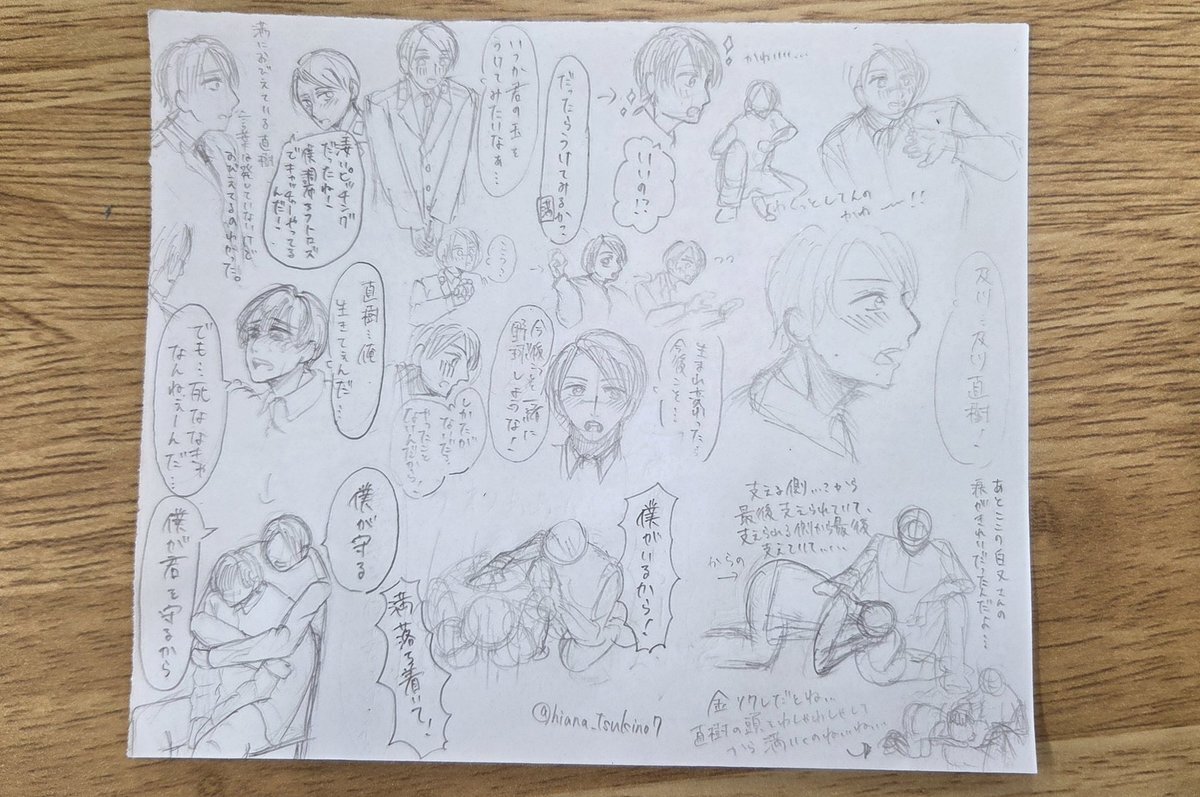 満におびえている直樹
一言葉は発していないけど
おびえてるのわかった。
凄いピッチング
だったね!
僕
でキャッチャーやってる
んだ!
いつか君の玉を
うけてみたいなぁ…
だったらうけてみるか?
満
いいの!?
かわいい…
かわ〜〜!!
こう?
直樹…俺
生きてぇんだ…
でも…死ななきゃ
なんねぇーんだ…
しかたが
ないだろ
やったこと
なんだから!
今度こそ一緒に
野球しような!
生まれ変わったら…
今度こそ…
及川…及川直樹!
あとここの白又さんの
涙がきれいだったんだよ…
支える側
最後支えられていて、
支えられる側から最後
支えていて…
からの
僕が守る
僕が君を守るから
満落ち着いて!
僕がいるから!
金リクしだとね…
直樹の頭をわしゃわしゃして
から満いくのねいいね…
@hiana_tsukino7